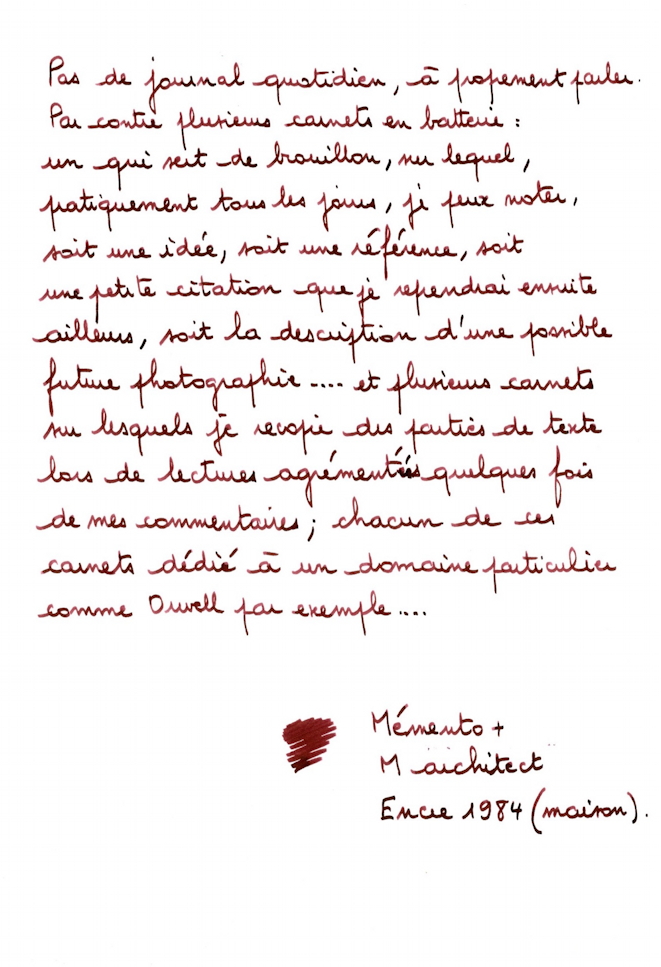 Pas de journal quotidien, à propement parler.
Par contre plusieurs carnets en batterie :
un qui sert de brouillon, sur lequel,
pratiquement tous les jours, je peux noter,
soit une idée, soit une référence, soit
une petite citation que je reprendrai ensuite
ailleurs, soit la description d'une possible
future photographie .... et plusieurs carnets
sur lesquels je recopie des parties de texte
lors de lectures agrémentées quelques fois
de mes commentaires ; chacun de ces
carnets dédié à un domaine particulier
comme Orwell par exemple ....
Mémento +
M architect
Encre 1984 (maison).